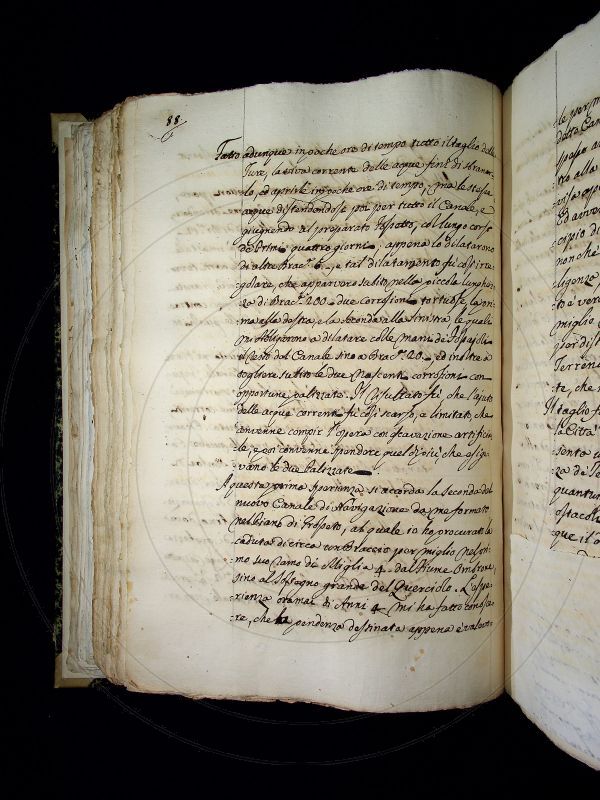 88
Fatto adunque in poche ore di tempo tutto il taglio delle
Ture, la viva corrente delle acque finì di sbranar-
-lo, ed aprirle in poche ore di tempo, ma le stesse
acque distendendosi poi per tutto il Canale, e
giugnendo al preparato Fossotto, col lungo corso
de primi quattro giorni, appena lo dilatarono
di altre Brac.ª 6, e tal dilatamento fu così irre-
golare, che apparvero subito nella piccola lunghez-
za di Brac.ª 200 due Corrosioni tortuose, la pri-
ma alla destra, e la seconda alla sinistra, le quali
mi obbligarono a dilatare colle mani de
il resto del Canale sino a Brac.ª 20, ed inoltre a
togliere tutte le due nascenti corrosioni con
opportune palizzate. Il Risultato fù, che l'ajuto
delle acque correnti fu così scarso, e limitato, che
convenne compir l'opera con escavazione artificia-
le, e poi convenne spendere quel di più, che esige-
vano le due Palizzate
A questa prima sperienza si accorda la seconda del
nuovo Canale di Navigazione da me formato
nel piano di Grosseto, al quale io ho procurato la
caduta di circa un Braccio per miglio nel pri-
mo suo ramo di Miglia 4 dal Fiume Ombrone
sino al Bisogno grande del Querciolo. L'espe-
rienza oramai di Anni 4 mi ha fatto conosce-
re, che la pendenza destinata appena è valevo-